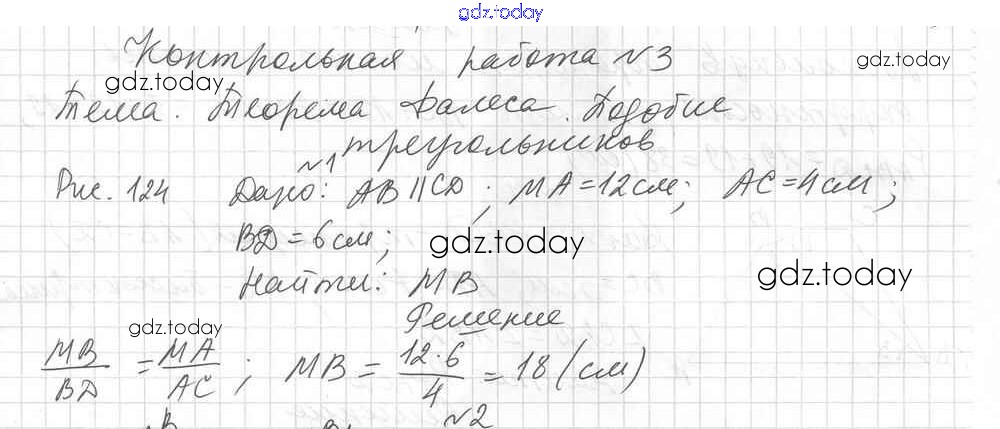 gdz.today
Контрольная работа №3
gdz.today
gdz.today
Тема. Теорема Фалеса. Подобие
треугольников
№1
Рис. 124 Дано: AB || CD; MA = 12 см; AC = 4 см;
BD = 6 см;
gdz.today
gdz.today
Найти: MB
Решение
gdz.today
MB/BD = MA/AC; MB = 12·6/4 = 18 (см)
№2